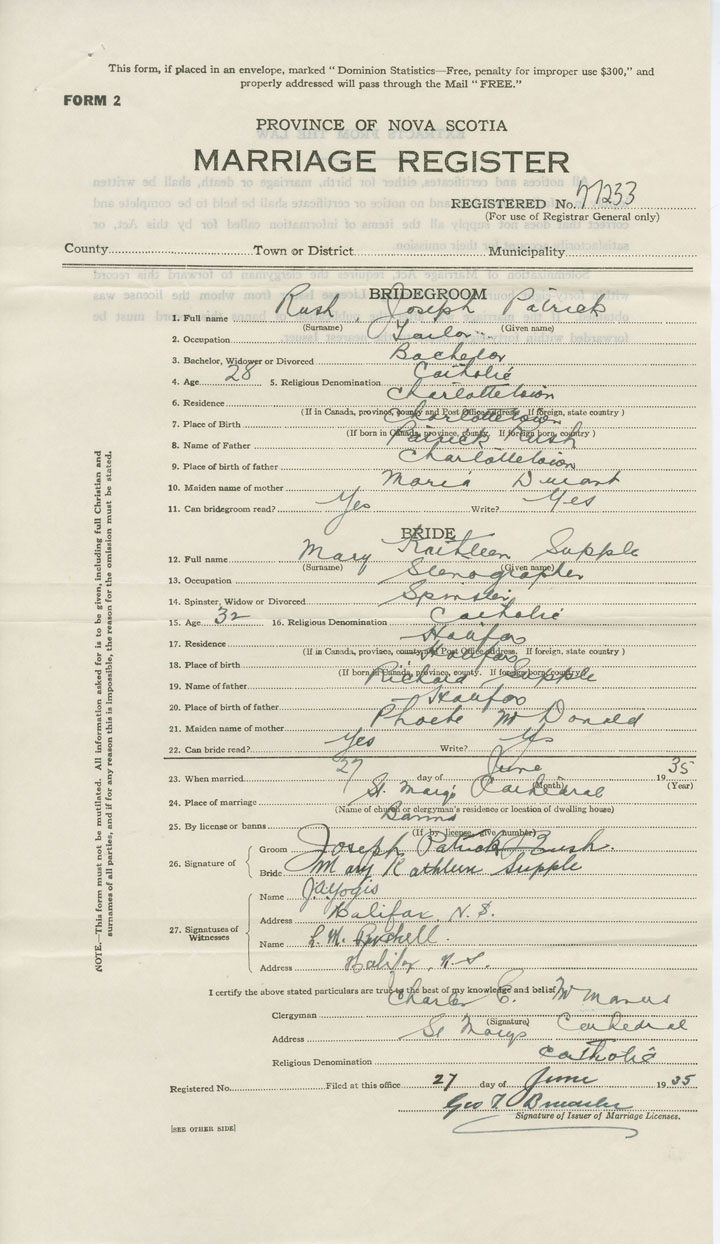 This form, if placed in an envelope, marked "Dominion Statistics—Free, penalty for improper use $300," and
properly addressed will pass through the Mail "FREE."
FORM 2
PROVINCE OF NOVA SCOTIA
MARRIAGE REGISTER
REGISTERED No. 77233
(For use of Registrar General only)
County Town or District Municipality
BRIDEGROOM
1. Full name Rush, Joseph Patrick
(Surname) (Given name)
2. Occupation Tailor
3. Bachelor, Widower or Divorced Bachelor
4. Age 28 5. Religious Denomination Catholic
6. Residence Charlottetown
(If in Canada, province, county and Post Office address. If foreign, state country)
7. Place of Birth Charlottetown
(If born in Canada, province, county. If foreign born, country)
8. Name of Father Patrick Rush
9. Place of birth of father Charlottetown
10. Maiden name of mother Maria Durant
11. Can bridegroom read? Yes Write? Yes
BRIDE
12. Full name Mary Kathleen Supple
(Surname) (Given name)
13. Occupation Stenographer
14. Spinster, Widow or Divorced Spinster
15. Age 32 16. Religious Denomination Catholic
17. Residence Halifax
(If in Canada, province, county and Post Office address. If foreign, state country)
18. Place of birth Halifax
(If born in Canada, province, county. If foreign born, country)
19. Name of father Richard Supple
20. Place of birth of father Halifax
21. Maiden name of mother Phoebe McDonald
22. Can bride read? Yes Write? Yes
23. When married 27 day of June 1935
(Month) (Year)
24. Place of marriage St. Mary's Cathedral
(Name of church or clergyman's residence or location of dwelling house)
25. By license or banns Banns
(If by license, give number)
26. Signature of Groom Joseph Patrick Rush.
Bride Mary Kathleen Supple
27. Signatures of Witnesses
Name J. A. Yogis
Address Halifax, N.S.
Name L. M. Buchell.
Address Halifax, N.S.
I certify the above stated particulars are true to the best of my knowledge and belief
Clergyman Charles E. McManus
(Signature)
Address St Marys Cathedral
Religious Denomination Catholic
Registered No. Filed at this office 27 day of June 1935
Geo T.
Signature of Issuer of Marriage Licenses.
[SEE OTHER SIDE]
NOTE.—This form must not be mutilated. All information asked for is to be given, including full Christian and
surnames of all parties, and if for any reason this is impossible, the reason for the omission must be stated.